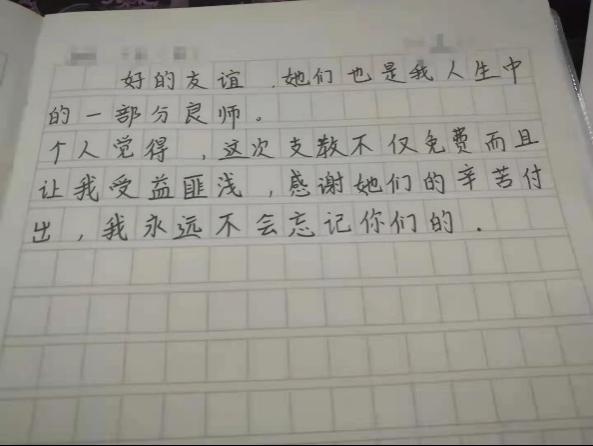 好的友谊，她们也是我人生中
的一部分良师。
个人觉得，这次支教不仅免费而且
让我受益匪浅，感谢她们的辛苦付
出，我永远不会忘记你们的.